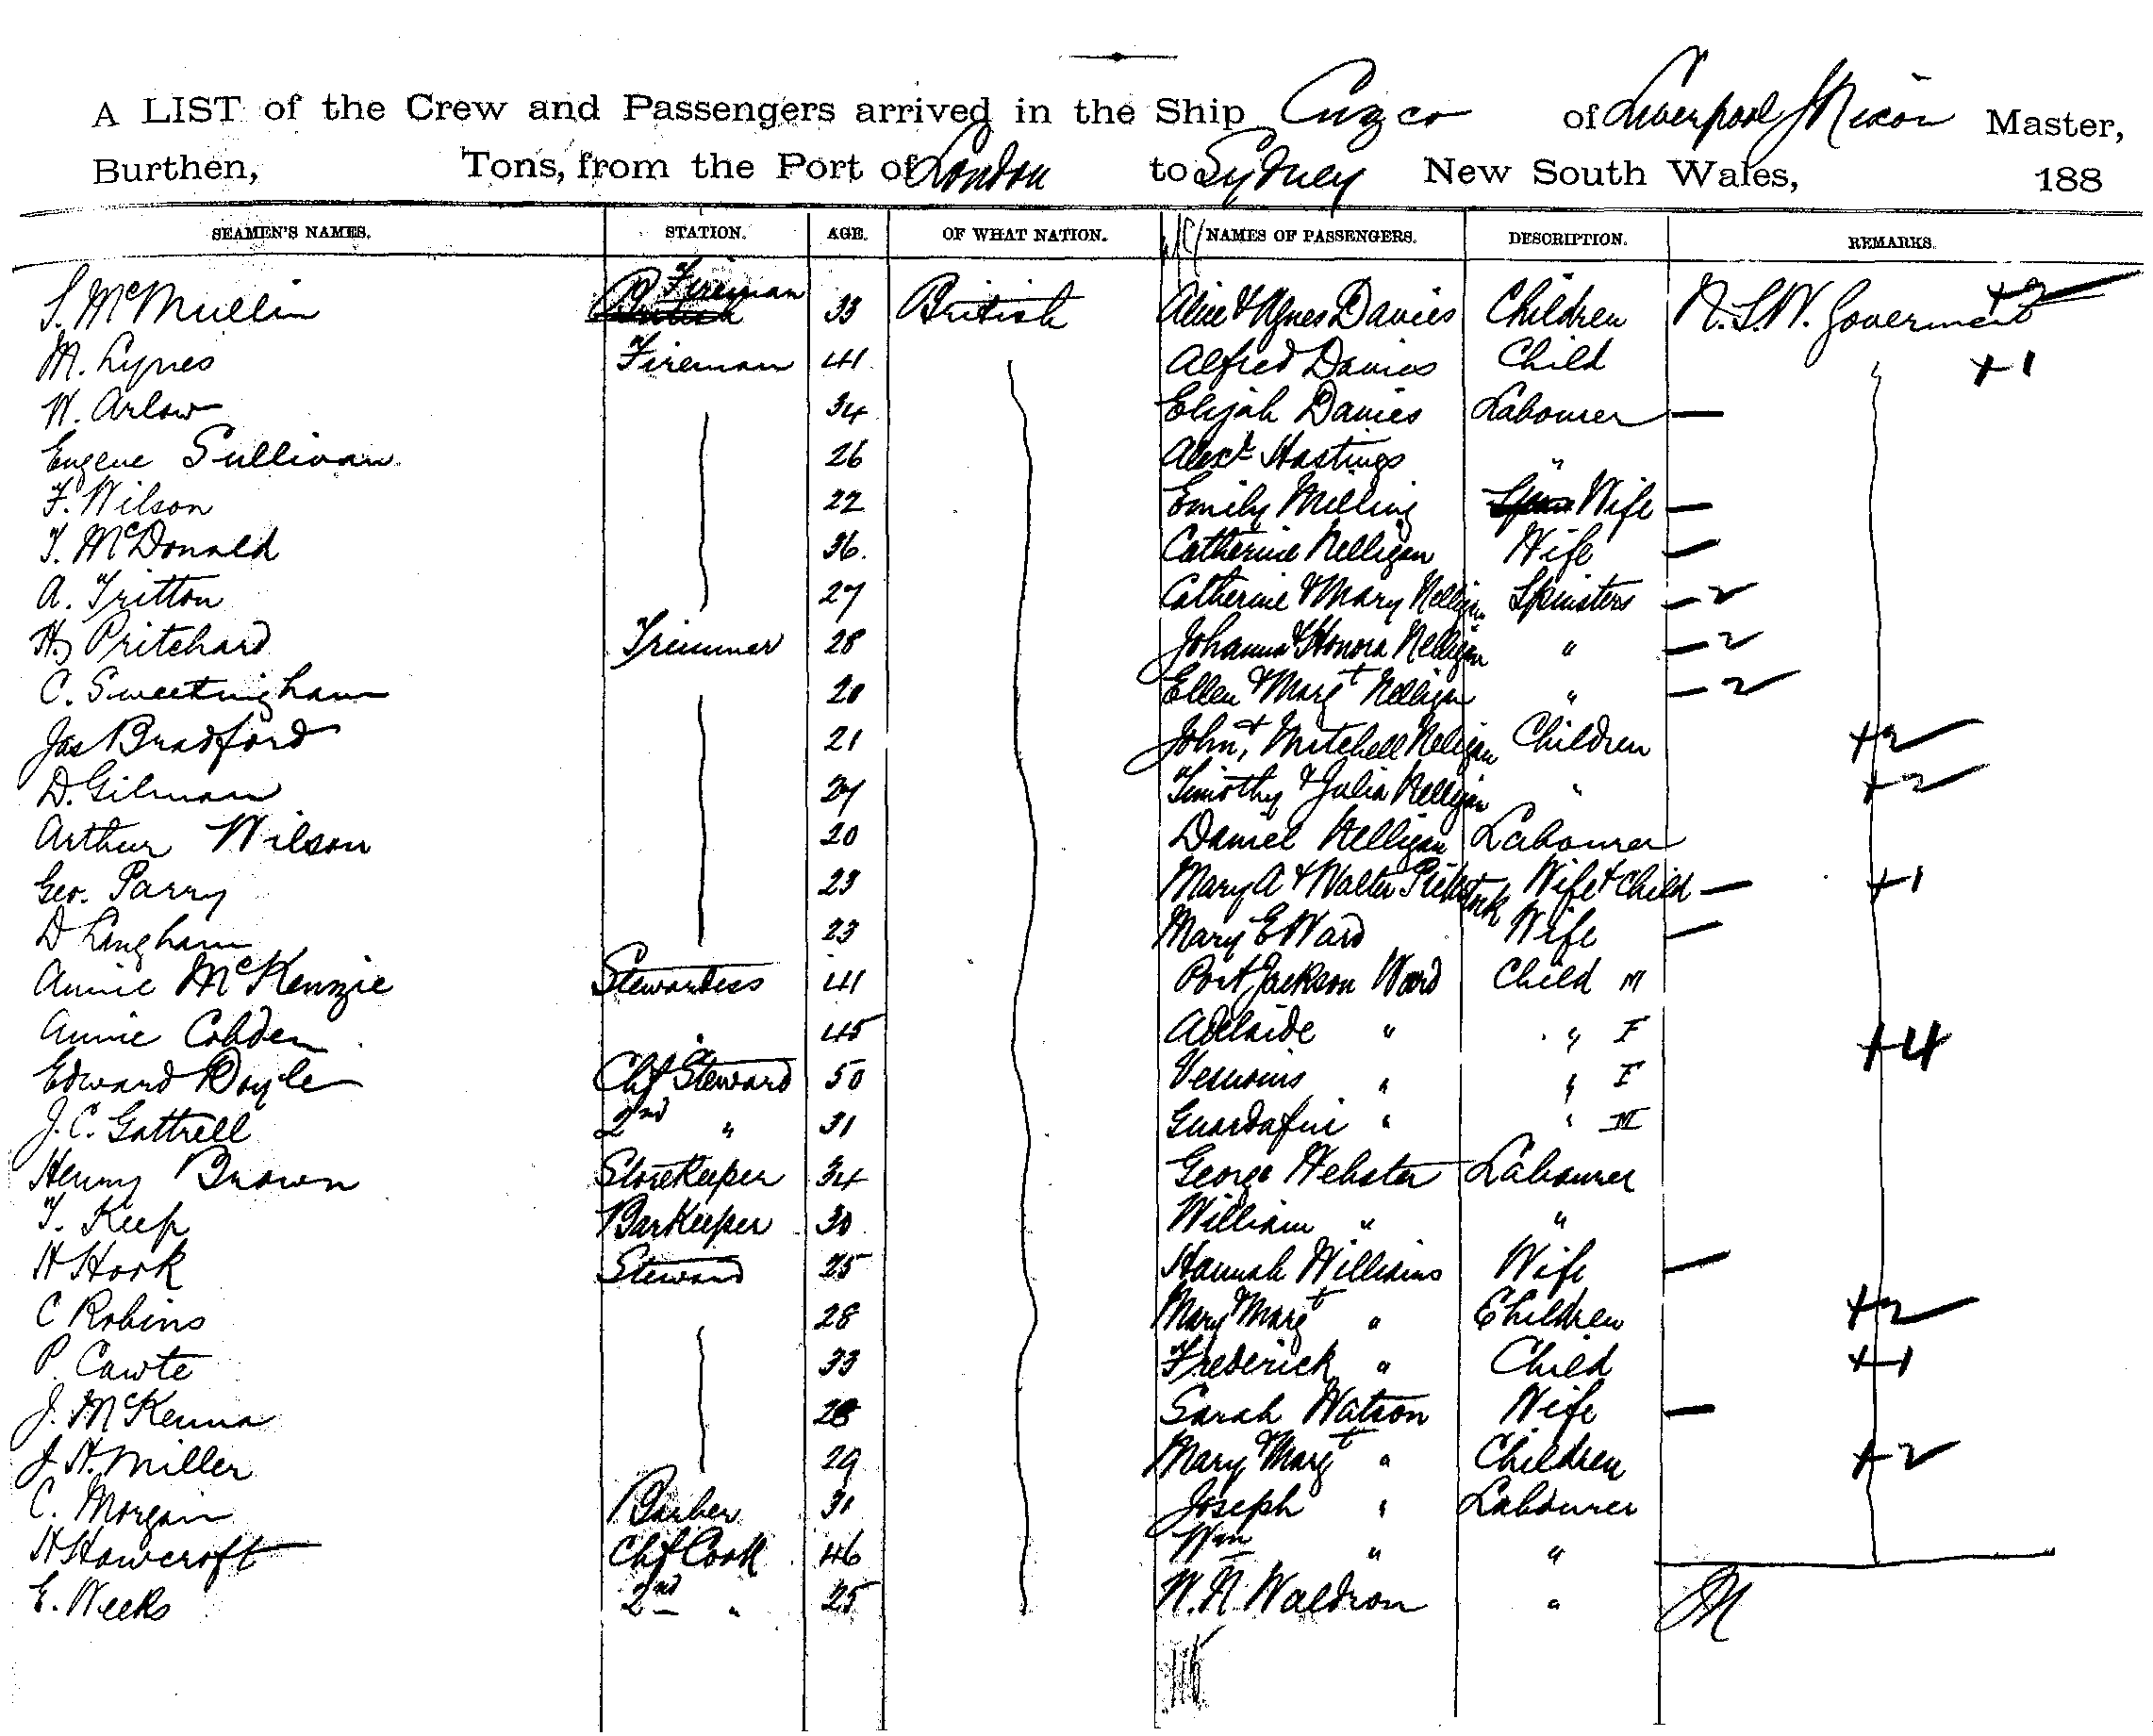 A LIST of the Crew and Passengers arrived in the Ship Cuzco of Liverpool J Nixon Master,
Burthen, Tons, from the Port of London to Sydney New South Wales, 188
SEAMEN'S NAMES. STATION. AGE. OF WHAT NATION. NAMES OF PASSENGERS. DESCRIPTION. REMARKS.
S. McMullin Fireman 33 British Alice & Agnes Davies Children N.S.W. Goverment +2
M. Lynes Fireman 41 Alfred Davies Child +1
W. Arlow 34 Elijah Davies Labourer —
Eugene Sullivan 26 Alexr Hastings "
F. Wilson 22 Emily Milling Wife —
T. McDonald 36 Catherine Nelligan Wife —
A. Tritton 27 Catherine & Mary Nelligan Spinsters — 2
Hy Pritchard Trimmer 28 Johanna & Honora Nelligan " — 2
C. Sweetingham 20 Ellen & Margt Nelligan " — 2
Jas Bradford 21 John & Mitchell Nelligan Children +2
D. Gilman 27 Timothy & Julia Nelligan " +2
Arthur Wilson 20 Daniel Nelligan Labourer
Geo. Parry 23 Mary A & Walter Wife & Child — +1
D Langham 23 Mary E Ward Wife —
Annie McKenzie Stewardess 41 Port Jackson Ward Child M
Annie Cobden " 45 Adelaide " " F +4
Edward Doyle Chf Steward 50 Vesuvius " " F
J. C. Gattrell 2nd " 31 Guardafui " " M
Henry Brown Storekeeper 34 George Webster Labourer
T. Keep Barkeeper 30 William " "
H Hook Steward 25 Hannah Williams Wife —
C Robins 28 Mary & Margt " Children +2
P. Cawte 33 Frederick " Child +1
J. McKenna 28 Sarah Watson Wife —
J. H. Miller 29 Mary & Margt " Children +2
C. Morgan Barber 31 Joseph " Labourer
H Howcroft Chf Cook 46 Wm " "
E. Weeks 2nd " 25 W. N. Waldron " M